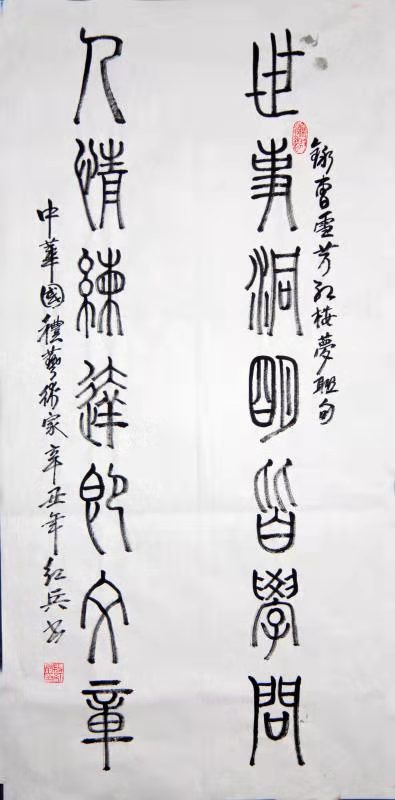 錄曹雪芹红楼夢聯句
世事洞明皆學問
人情練達即文章
中華國禮藝術家辛丑年红兵书